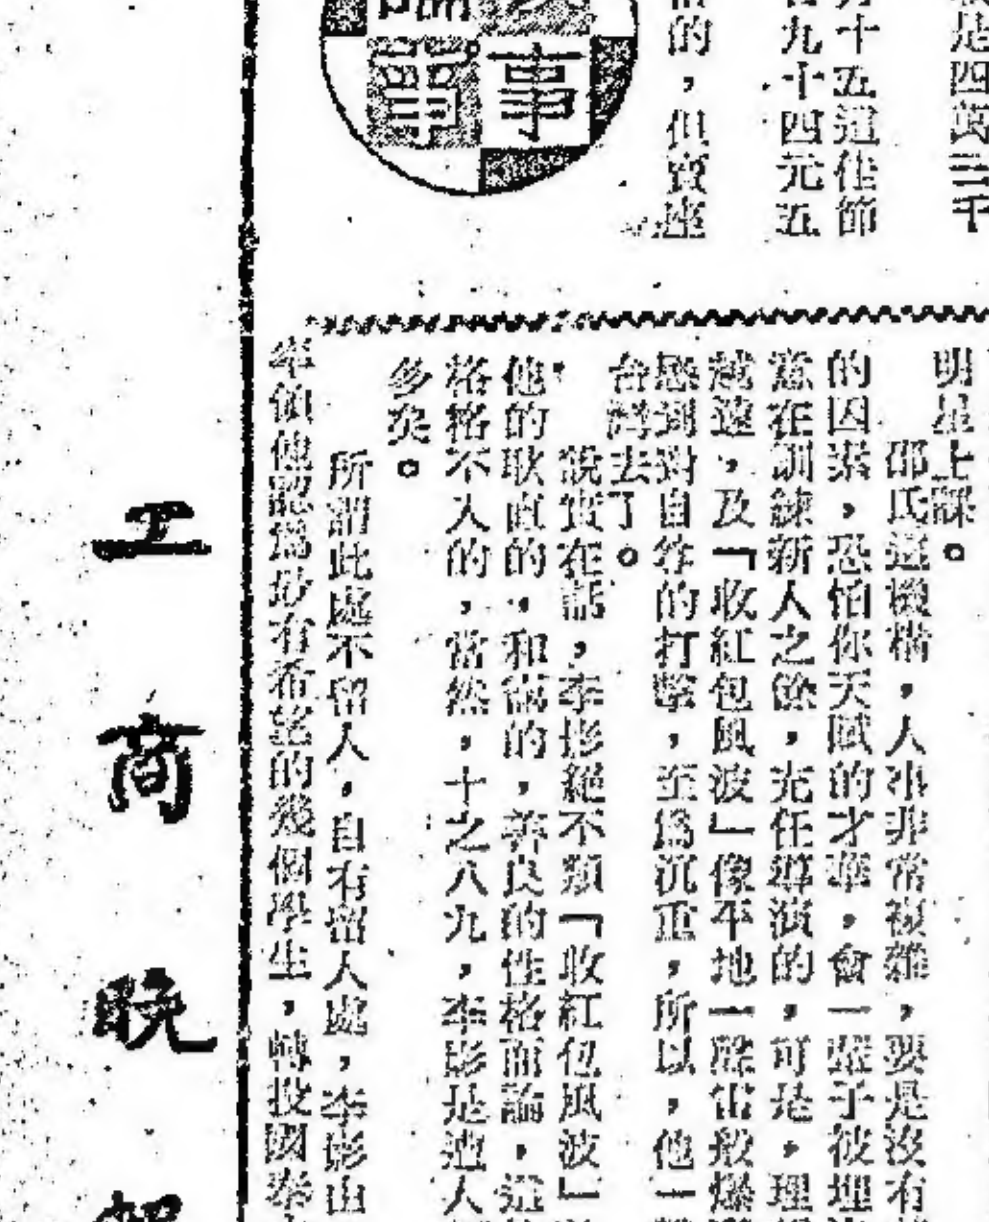 是四萬三千
月十五這佳節
九十四元五
的，但賣座
事
明星上課。
邵氏這機構，人事非常複雜，要是沒有
的因素，恐怕你天賦的才華，會一輩子被埋
意在訓練新人之餘，充任導演的，可是，理
就遠，及「收紅包風波」像平地一聲雷般爆
感到對自尊的打擊，至爲沉重，所以，他一
台灣去了。
說實在話，李影絕不類「收紅包風波」
他的耿直的，和藹的，善良的性格而論，這
格格不入的，當然，十之八九，李影是遭人
多矣。
所謂此處不留人，自有留人處，李影由
率領他認爲彀有希望的幾個學生，轉投國泰
工商晚報